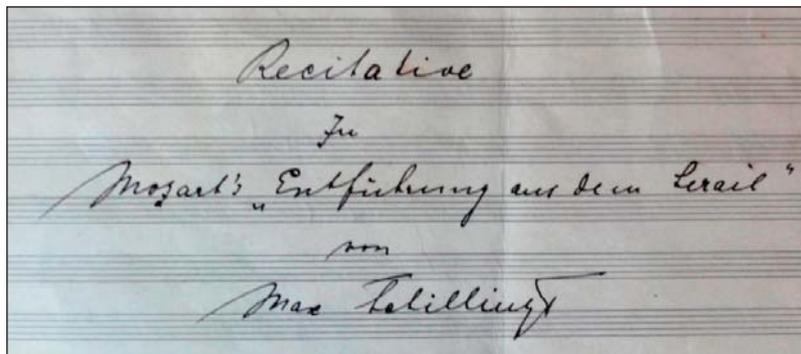 Recitative
zu
Mozart's „Entführung aus dem Serail"
von
Max Schillings